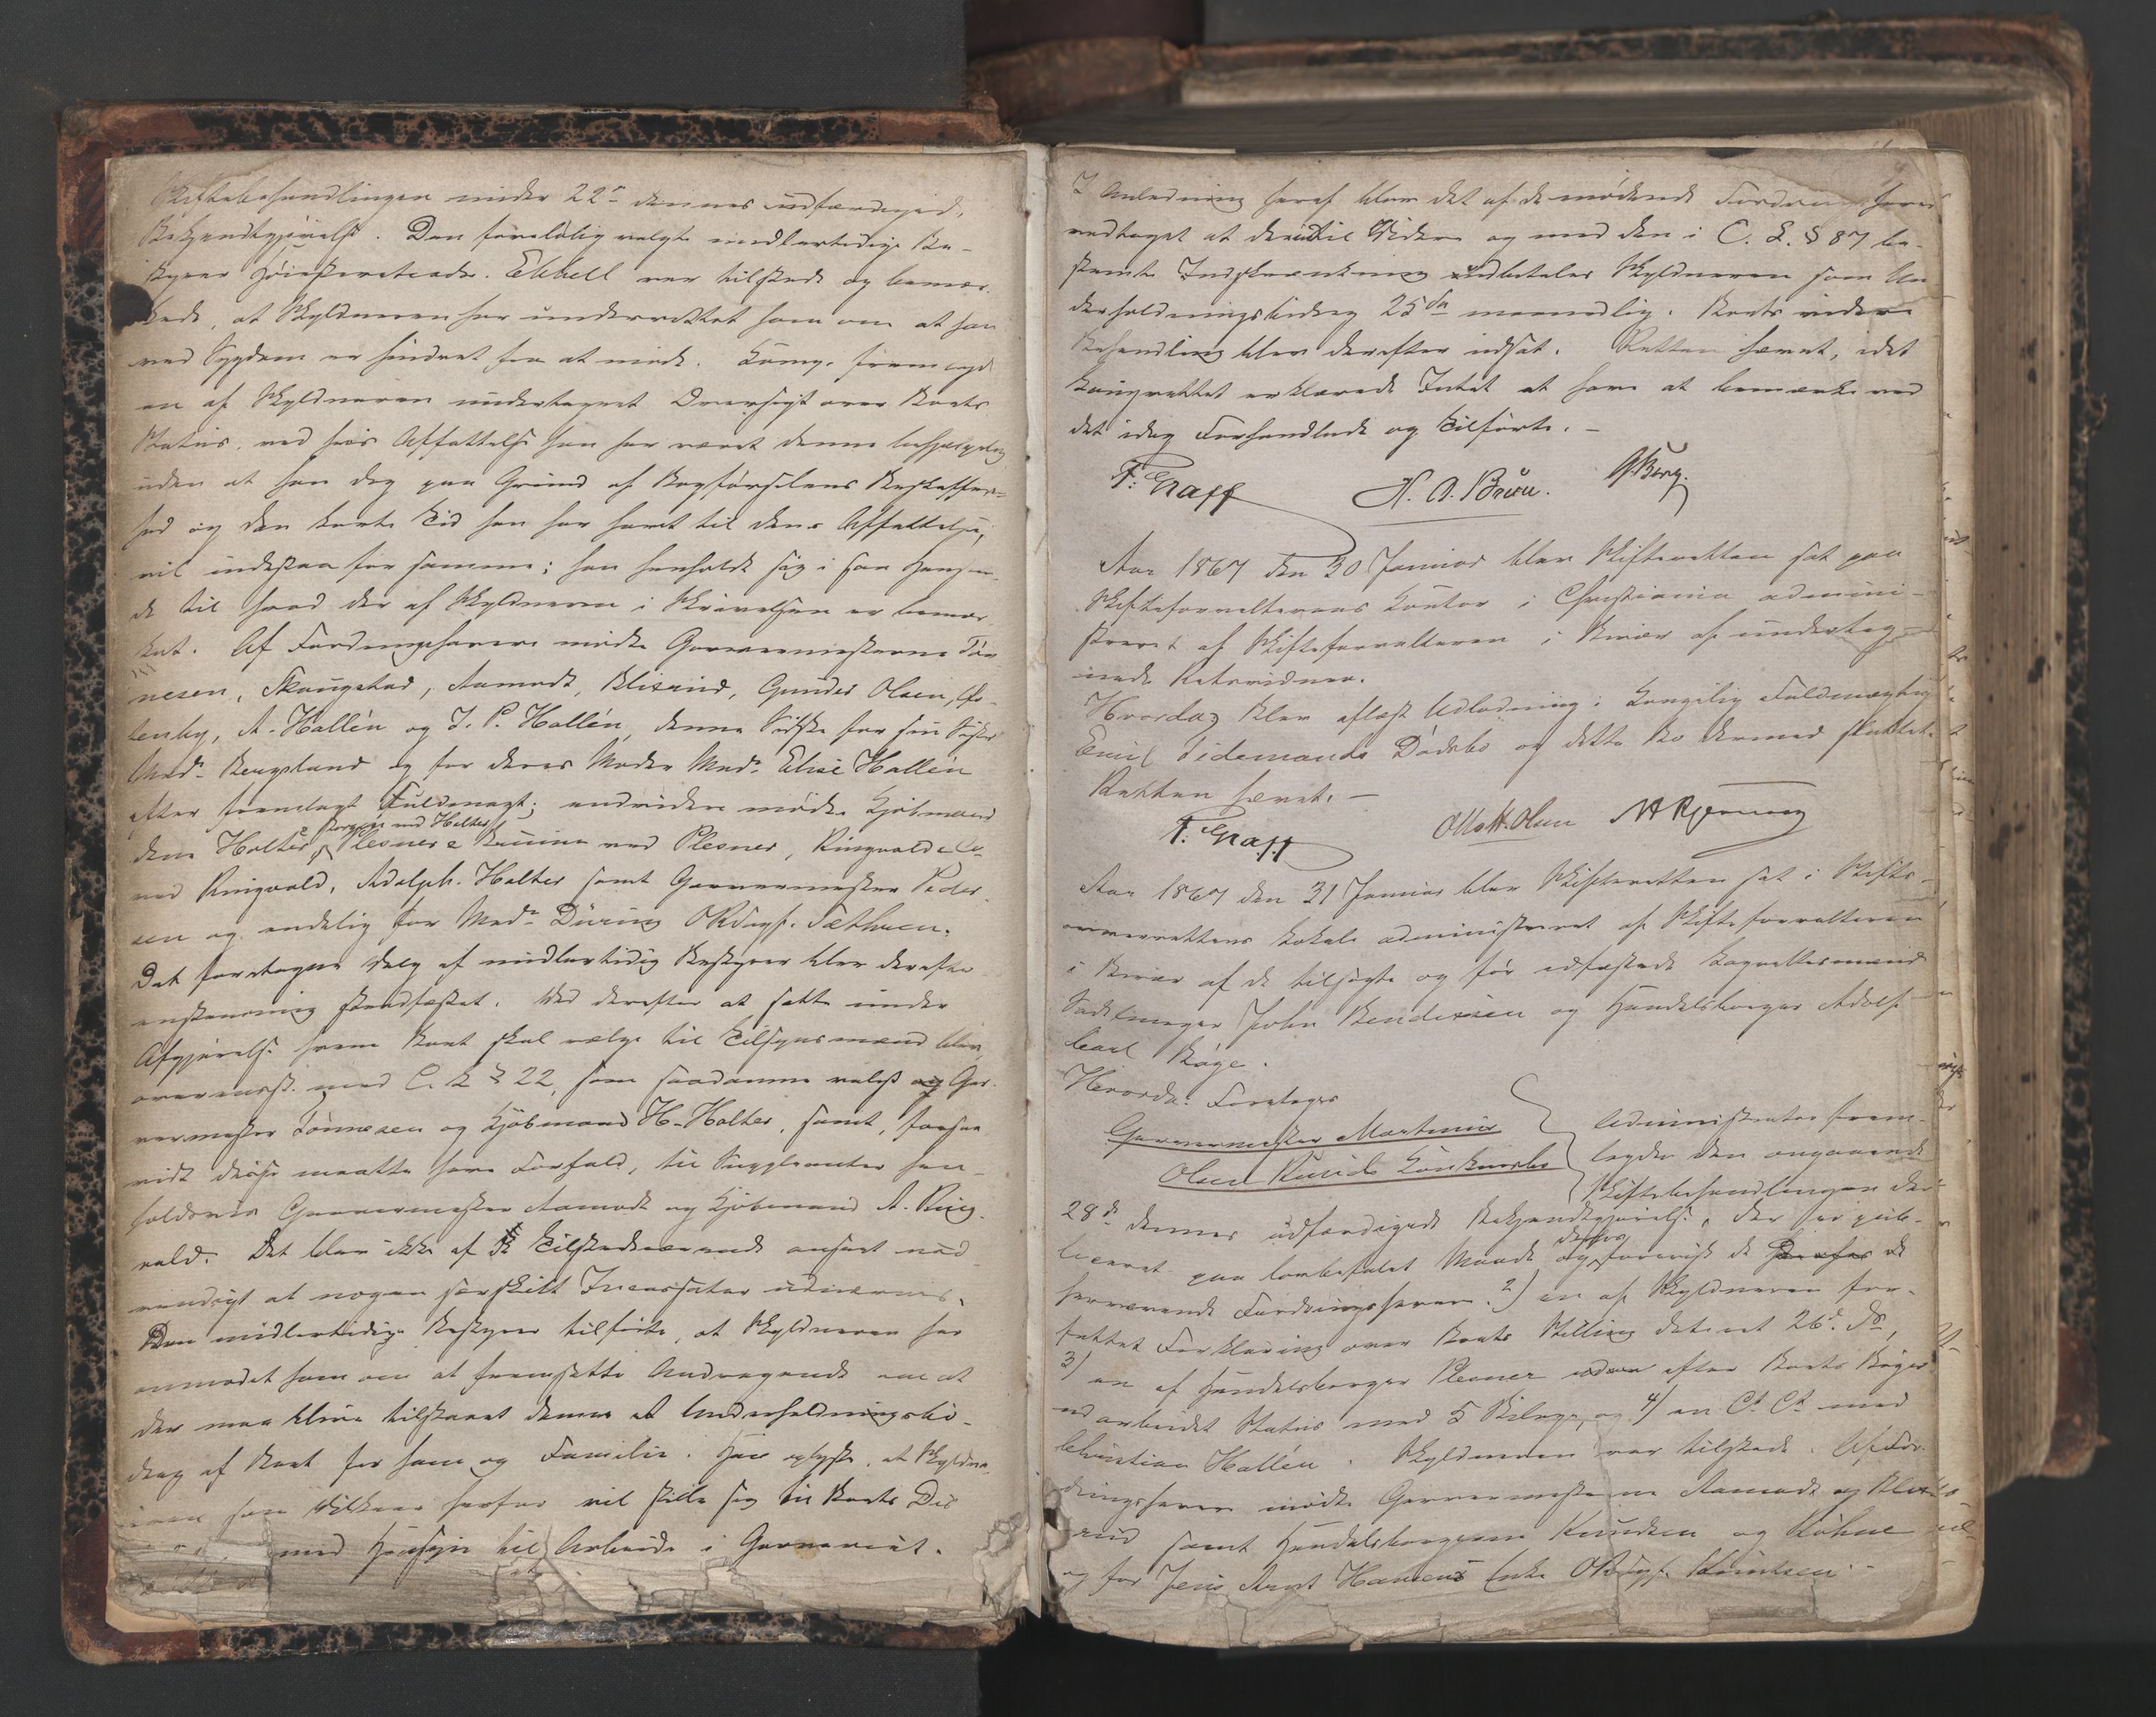 Skiftebehandlingen under 22de dennes udfærdigede
Bekjendtgjørelse. Den foreløbig valgte midlertidige Be-
styrer Høiesteretsadv. Ebbell var tilstede og bemær-
kede, at Skyldneren har underrettet ham om at han
ved Sygdom er hindret fra at møde. Comp. fremlagde
en af Skyldneren undertegnet Oversigt over Boets
Status, ved hvis Affattelse han har været denne behjælpelig
uden at han dog paa Grund af Bogførselens Beskaffen-
hed og den korte Tid han har havt til dens Affattelse,
vil indestaa for samme; han henholdt sig i saa Henseen-
de til hvad der af Skyldneren i Skrivelsen er bemær-
ket. Af Fordringshavere mødte Garvermesterne Tøn
nesen, Skougstad, Aamodt, Blixrud, Gunder Olsen, Øs-
tenby, A. Hallén og J. P. Hallén, denne Sidste for sin Søster
Mad. Bergsland og for deres Moder Mad. Elise Hallén
efter fremlagt Fuldmagt; endvidere mødte Kjøbmænd
dene Holter & Borgen ved Holter, Plesner & Bruun ved Plesner, Ringvold & Co
ved Ringvold, Adolph Holter samt Garvermester Peder
sen og endelig for Mad. Düring ORSagf. Sæthren.
Det foretagne Valg af midlertidig Bestyrer blev derefter
enstemmig stadfæstet. Ved derefter at sætte under
Afgjørelse hvem Boet skal vælge til Tilsynsmænd blev,
overensst. med C. L. § 22, som saadanne valgt Gar-
vermester Tønnesen og Kjøbmand H. Holter, samt, forsaa
vidt disse maatte have Forfald, til Suppleanter hen-
holdsvis Garvermester Aamodt og Kjøbmand A. Ring-
vold. Det blev ikke af de Tilstedeværende anseet nød
vendigt at nogen særskilt Incassator udnævnes.
Den midlertidige Bestyrer tilførte, at Skyldneren har
anmodet ham om at fremsætte Andragende om at
der maa blive tilstaaet denne et Underholdningsbi-
drag af Boet for ham og Familie. Han oplyste, at Skyldne
ren som Vilkaar herfor vil stille sig til Boets Dis
med Hensyn til Arbeide i Garveriet.
I Anledning heraf blev det af de mødende Fordringshavere
vedtaget at der indtil Videre og med den i C. L. § 87 be-
stemte Indskrænkning udbetales Skyldneren som Un
derholdningsbidrag 25 Spd maanedlig. Boets videre
Behandling blev derefter udsat. Retten hævet, idet
Laugrettet erklærede Intet at have at bemærke ved
det idag Forhandlede og Tilførte. –
F. Graff H. A. Bruu. G. Berg.
Aar 1867 den 30 Januar blev Skifteretten sat paa
Skifteforvalterens Contor i Christiania admini-
streret af Skifteforvalteren i Overvær af underteg-
nede Retsvidner.
Hvorda: blev aflæst Udlodning i Kongelig Fuldmægtig
Emil Tidemands Dødsbo og dette Bo dermed sluttet.
Retten hævet. –
F. Graff Otto H. Olsen
Aar 1867 den 31 Januar blev Skifteretten sat i Stifts-
overrettens Lokale administreret af Skifteforvalteren
i Overvær af de tilsagte og før edfæstede Laugrettesmænd
Sadelmager John Bendixen og Handelsborger Adolf
Carl Bøge.
Hvorda: Foretoges
Garvermester Martinius
Olsen Ruuds Concursbo
Administrator frem-
lagde den angaaende
Skiftebehandlingen den
28de dennes udfærdigede Bekjendtgjørelse, der er pub-
liceret paa lovbefalet Maade og forevist de
herværende Fordringshavere. 2) en af Skyldneren for-
fattet Forklaring over Boets Stilling dateret 26de ds,
3) en af Handelsborger Plesner efter Boets Bøger
udarbeidet Status med 5 Bilage, og 4) en Ct Ct med
Christian Hallén. Skyldneren var tilstede. Af For-
dringshavere mødte Garvermesterne Aamodt og Blix
rud samt Handelsborgerne Knudsen og Røhne
og for Jens Arnt Hansens Enke ORSagf. Knudsen